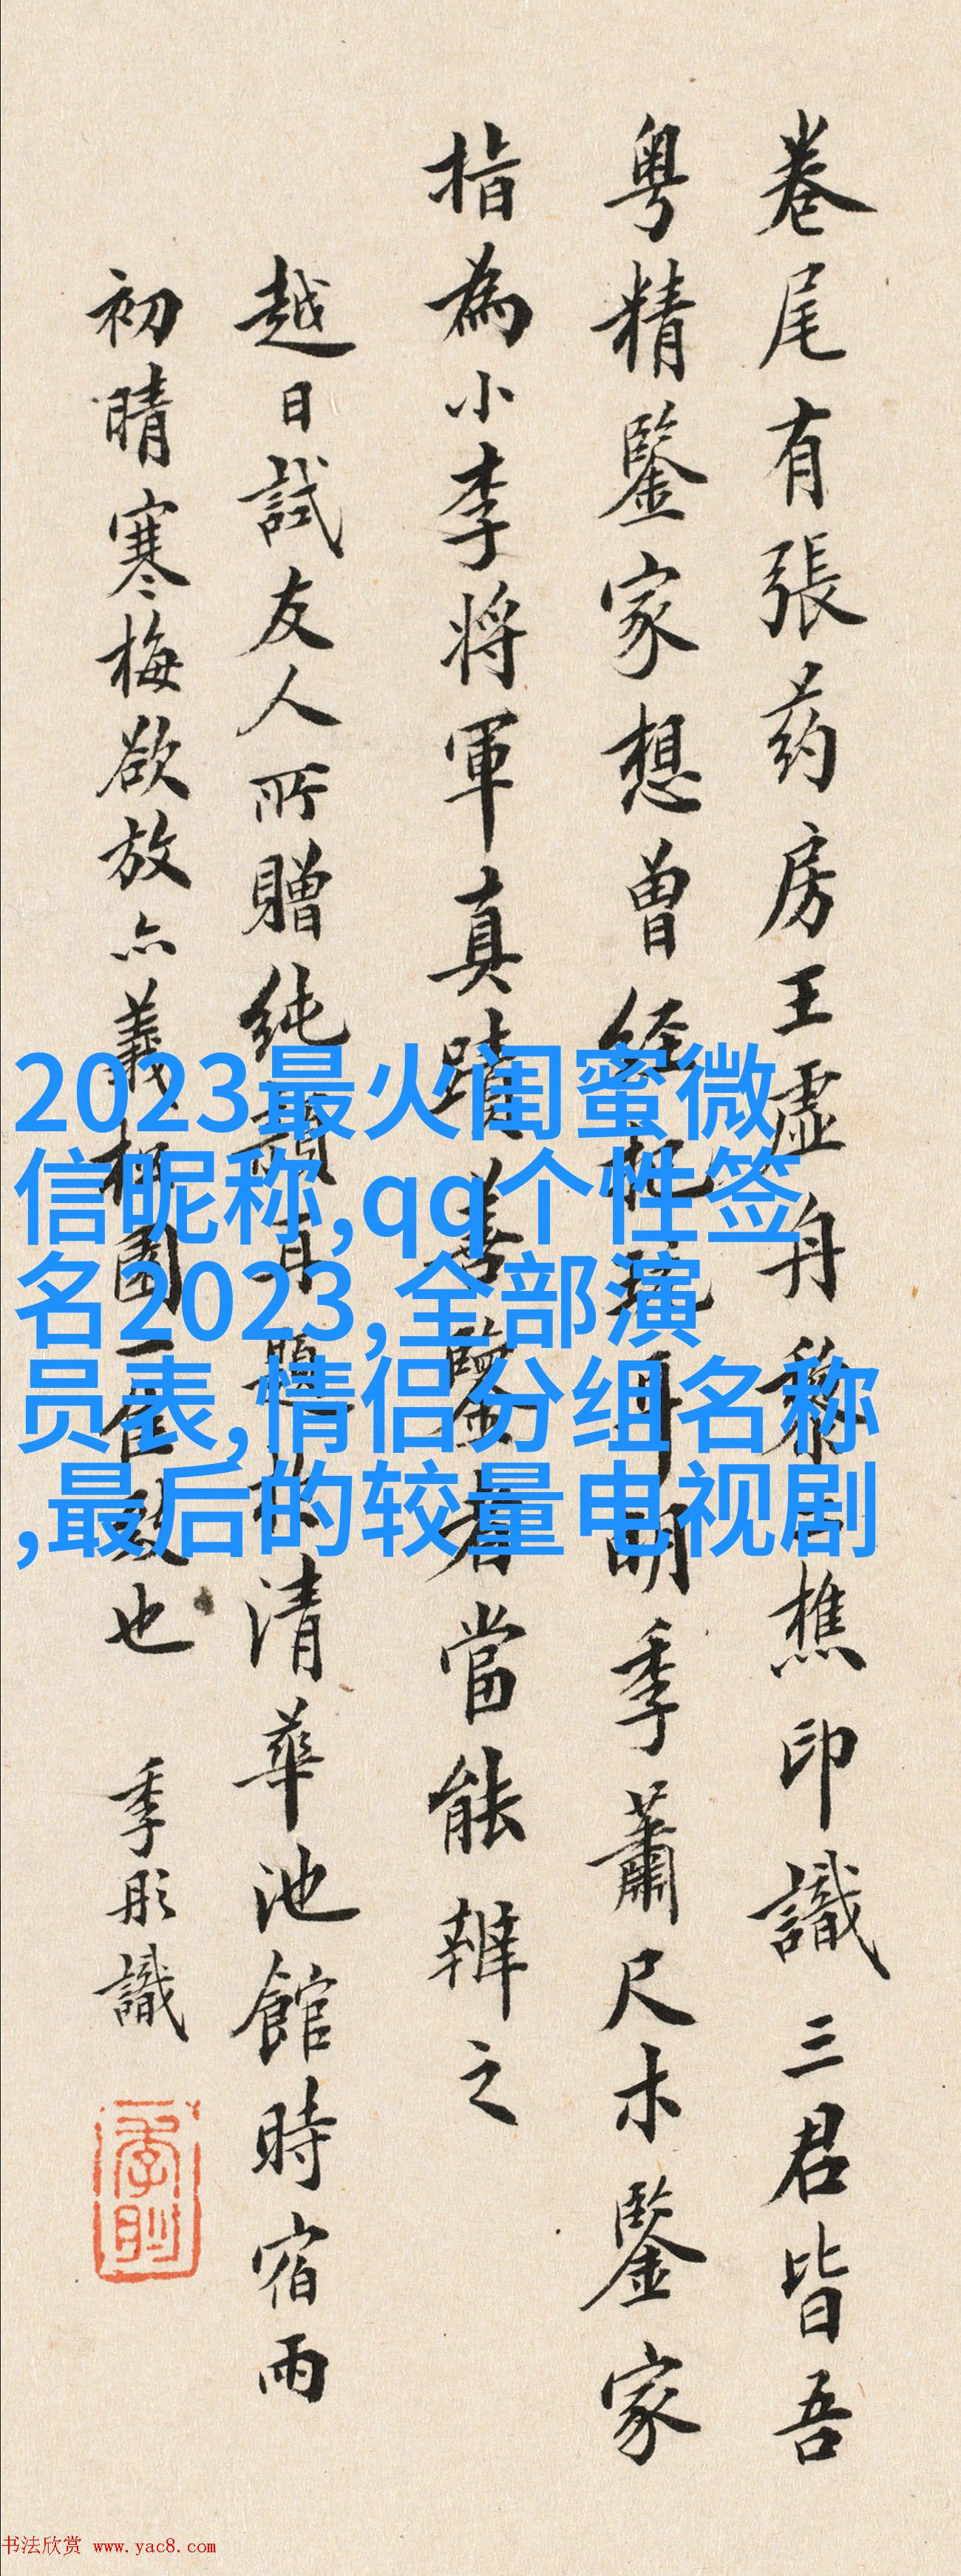 卷尾有張药房王虚舟蔡樵印識三君皆吾
粤精鑒家想曾經明季蕭尺木鑒家
指為小李將軍真蹟善鑒者當能辨之
越日試友人所贈純須再題於清華池館時宿雨
初晴寒梅欲放亦義極園一雀致也
季彤識
2023最火闺蜜微
信昵称,qq个性签
名2023,全部演
员表,情侣分组名称
,最后的较量电视剧
书法欣赏 www.yac8.com